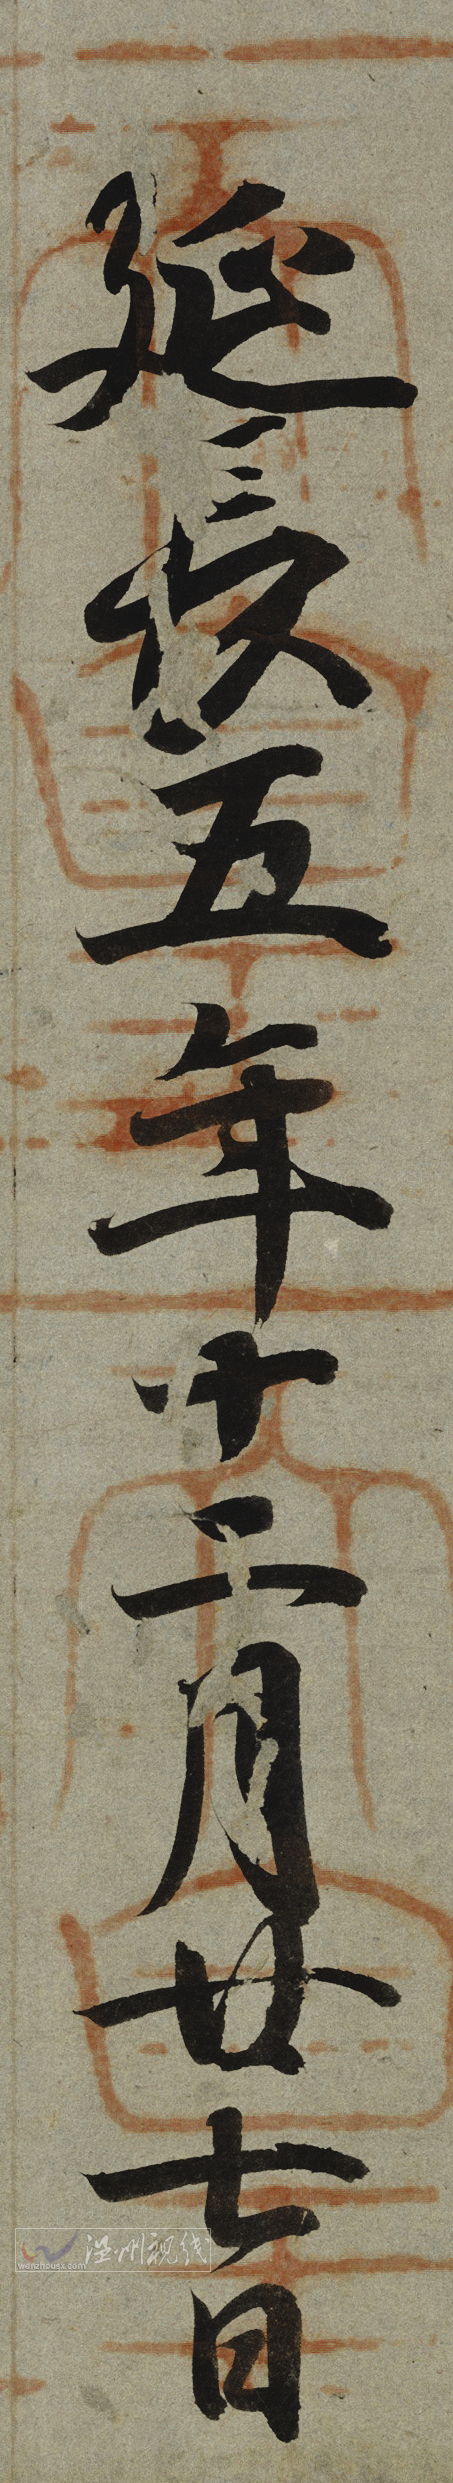 延長五年十二月廿七日
温州视线
wenzhousx.com